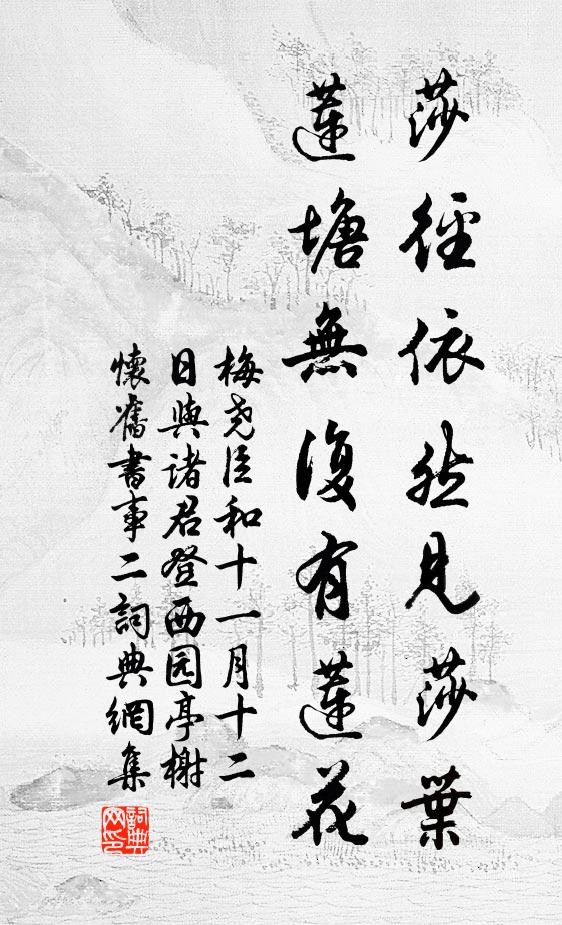 莎徑依然見莎葉
蓮塘無復有蓮花
梅尧臣和十一月十二
日與诸君登西园亭榭
懷舊書事二詞典網集
詞典网印